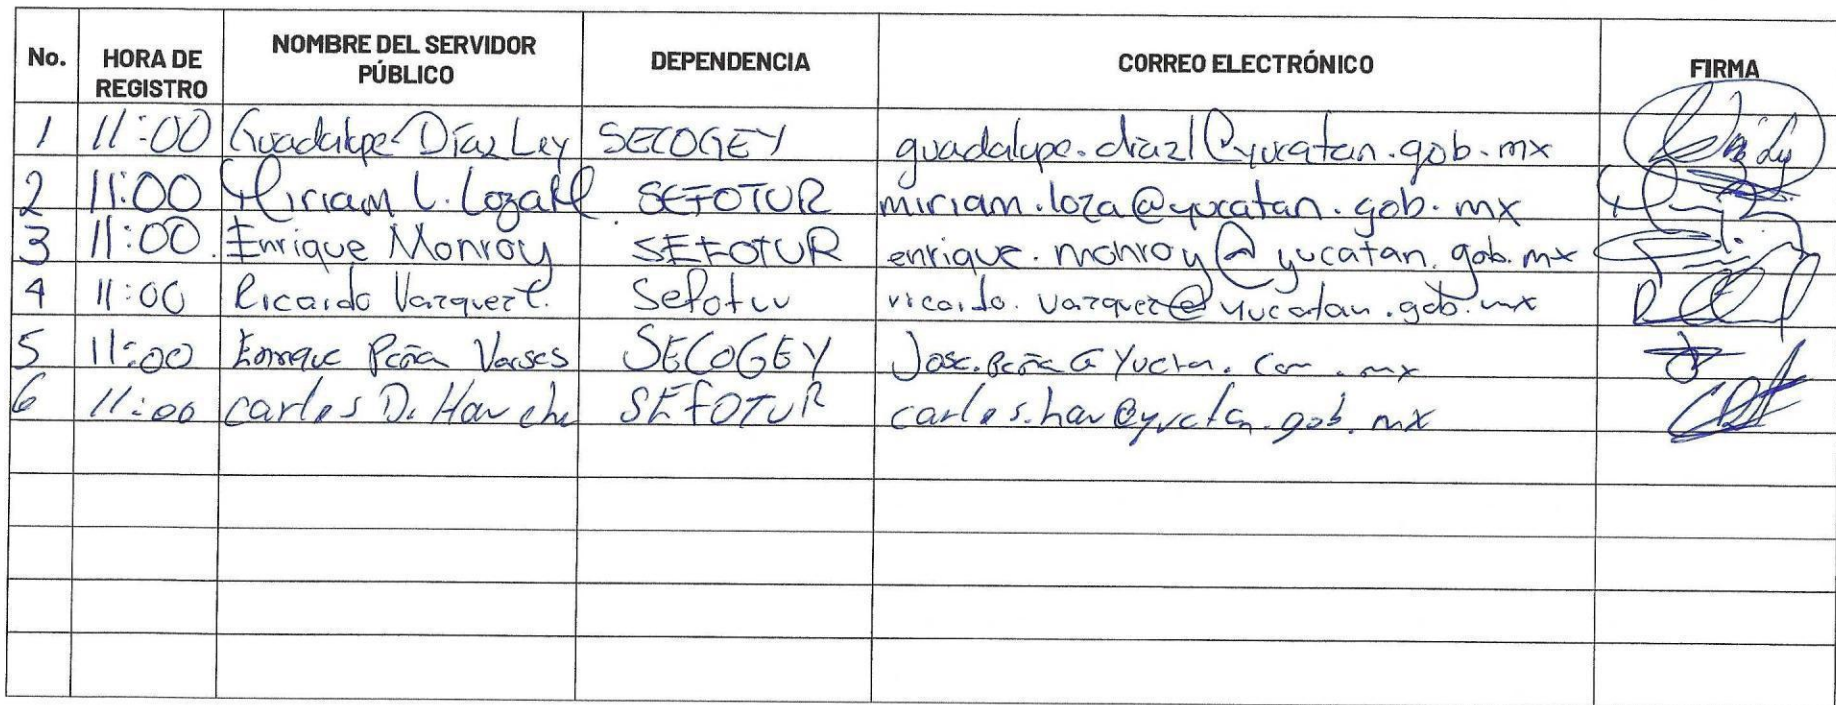 No. HORA DE REGISTRO NOMBRE DEL SERVIDOR PÚBLICO DEPENDENCIA CORREO ELECTRÓNICO FIRMA
1 11:00 Guadalupe Díaz Ley SECOGEY guadalupe.diazl@yucatan.gob.mx
2 11:00 Miriam L. SEFOTUR miriam.loza@yucatan.gob.mx
3 11:00 Enrique Monroy SEFOTUR enrique.monroy@yucatan.gob.mx
4 11:00 Ricardo Vazquez Sefotur ricardo.vazquez@yucatan.gob.mx
5 11:00 Enrique Peña SECOGEY
6 11:00 Carlos D. SEFOTUR